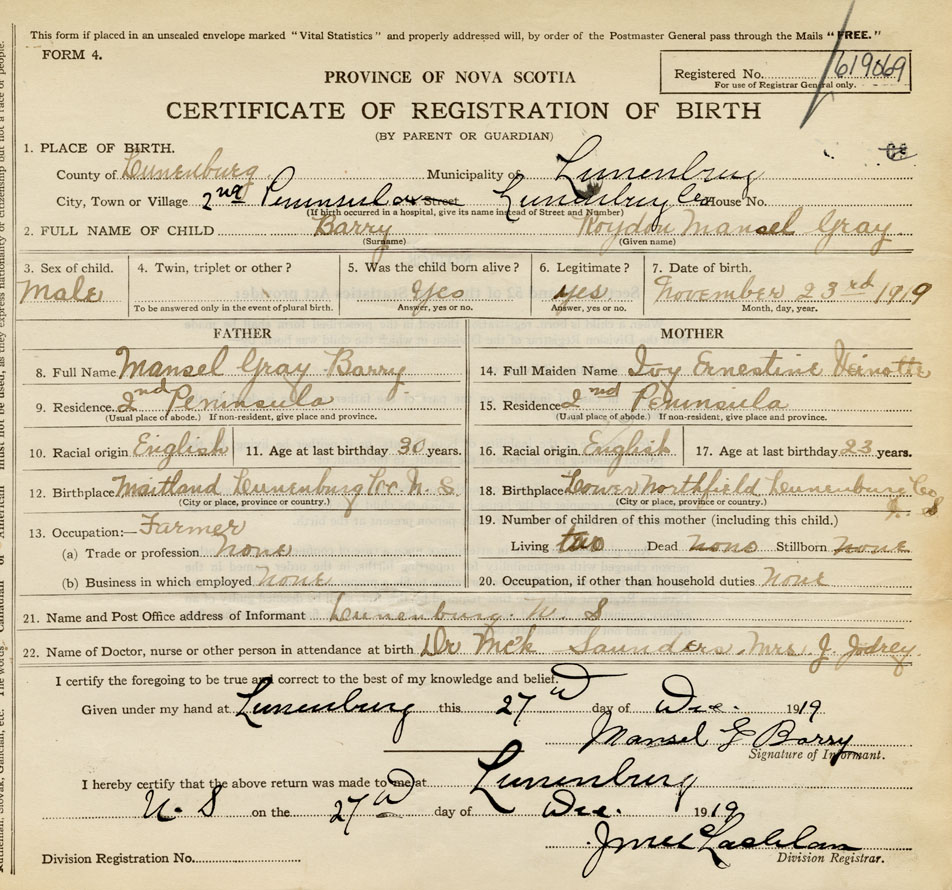 This form if placed in an unsealed envelope marked "Vital Statistics" and properly addressed will, by order of the Postmaster General pass through the Mails "FREE."
FORM 4.
Registered No. 619069
For use of Registrar General only.
PROVINCE OF NOVA SCOTIA
CERTIFICATE OF REGISTRATION OF BIRTH
(BY PARENT OR GUARDIAN)
1. PLACE OF BIRTH.
County of Lunenburg Municipality of Lunenburg
City, Town or Village 2nd Peninsula Street Lunenburg Co House No.
(If birth occurred in a hospital, give its name instead of Street and Number)
2. FULL NAME OF CHILD Barry Roydon Mansel Gray
(Surname) (Given name)
3. Sex of child. 4. Twin, triplet or other? 5. Was the child born alive? 6. Legitimate? 7. Date of birth.
Male Yes yes November 23rd 1919
To be answered only in the event of plural birth. Answer, yes or no. Answer, yes or no. Month, day, year.
FATHER MOTHER
8. Full Name Mansel Gray Barry 14. Full Maiden Name Ivy Ernestine Veinotte
9. Residence 2nd Peninsula 15. Residence 2nd Peninsula
(Usual place of abode.) If non-resident, give place and province. (Usual place of abode.) If non-resident, give place and province.
10. Racial origin English 11. Age at last birthday 30 years. 16. Racial origin English 17. Age at last birthday 23 years.
12. Birthplace Maitland Lunenburg Co. N. S. 18. Birthplace Lower Northfield Lunenburg Co
(City or place, province or country.) (City or place, province or country.) N. S
13. Occupation:— Farmer 19. Number of children of this mother (including this child.)
(a) Trade or profession none Living two Dead none Stillborn none
(b) Business in which employed none 20. Occupation, if other than household duties none
21. Name and Post Office address of Informant Lunenburg. N. S
22. Name of Doctor, nurse or other person in attendance at birth Dr McK Saunders. Mrs. J. Jodrey.
I certify the foregoing to be true and correct to the best of my knowledge and belief.
Given under my hand at Lunenburg this 27th day of Dec. 1919
Mansel G Barry
Signature of Informant.
I hereby certify that the above return was made to me at Lunenburg
N. S on the 27th day of Dec. 1919
Division Registration No. Division Registrar.